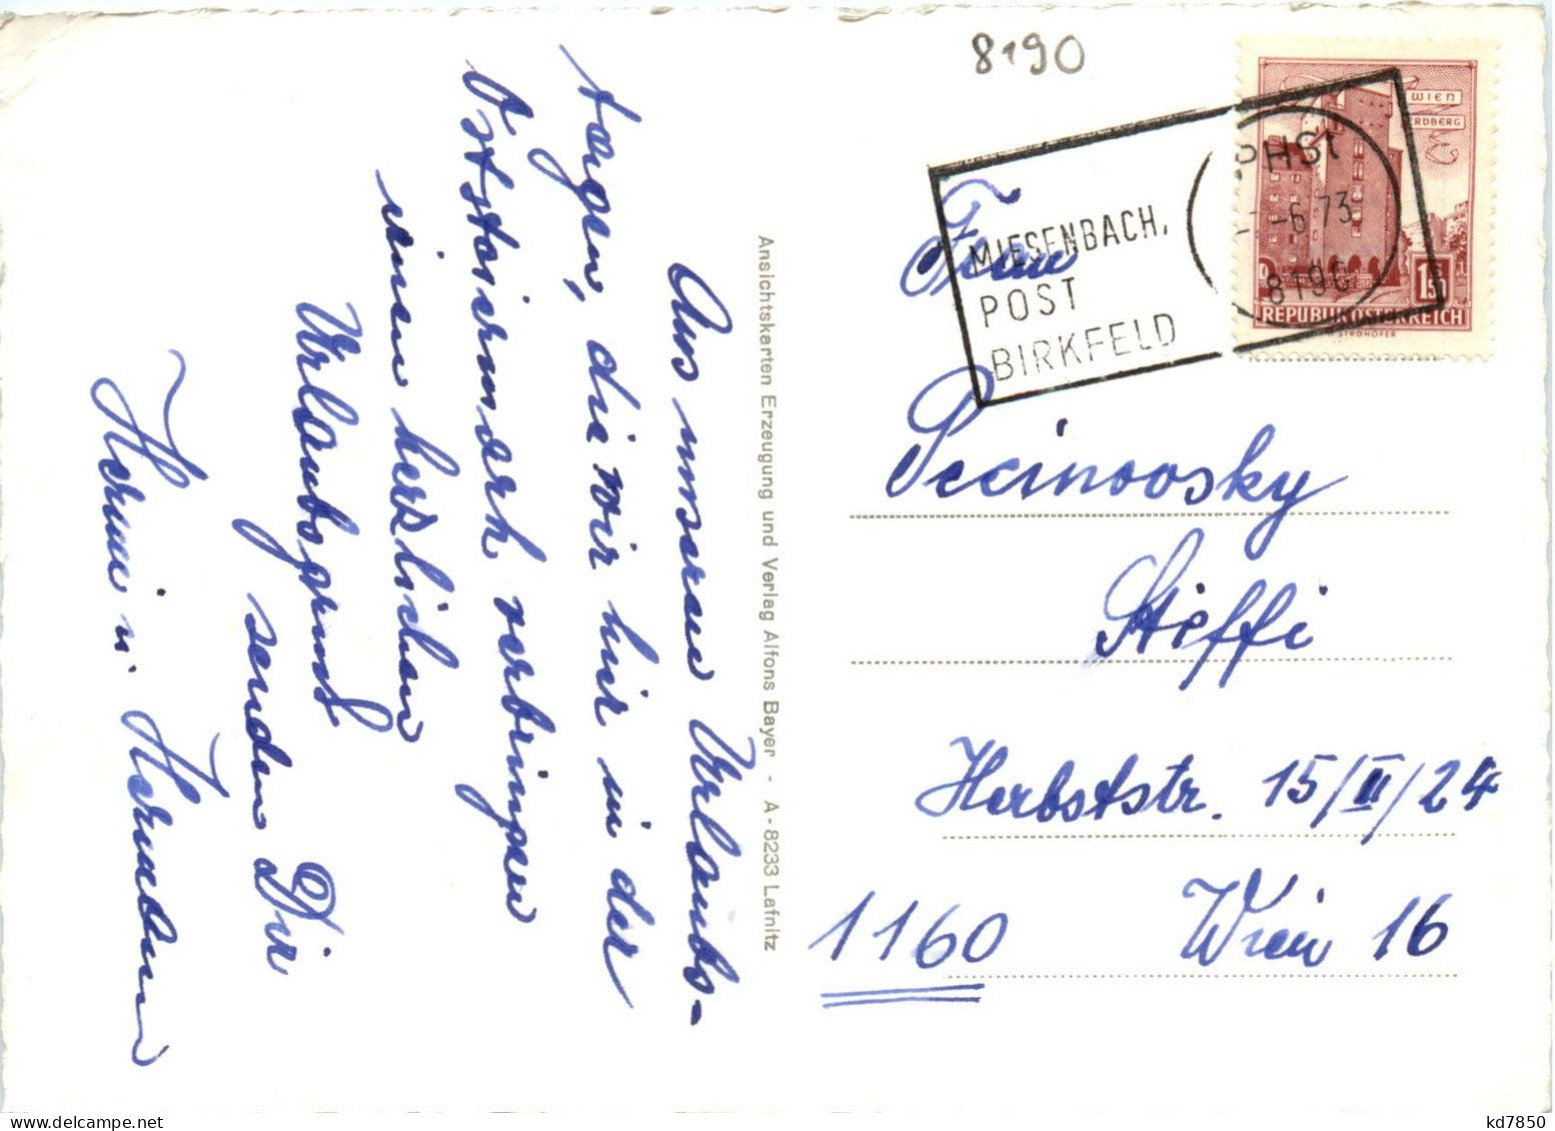 8190
WIEN
ERDBERG
PHSt
-6.73
8190
1.50
REPUBLIK ÖSTERREICH
STROHOFER
MIESENBACH,
POST
BIRKFELD
Frau
Pecinovsky
Steffi
Herbststr. 15/II/24
1160 Wien 16
Ansichtskarten Erzeugung und Verlag Alfons Bayer - A-8233 Lafnitz
Aus unseren Urlaubs-
tagen, die wir hier in der
Oststeiermark verbringen
einen herzlichen
Urlaubsgruß
senden Dir
Hermi u. Hermann
kd7850